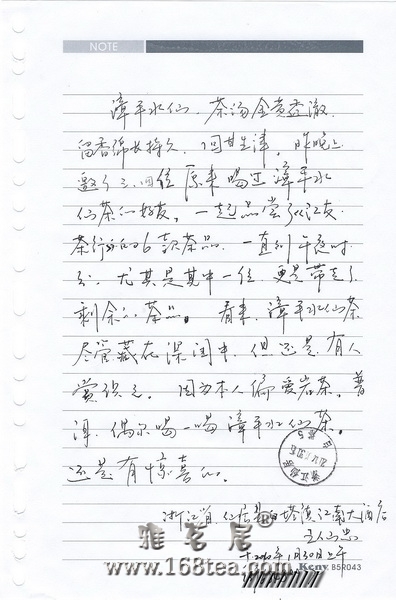 NOTE
漳平水仙,茶汤金黄透澈,
留香绵长持久,回甘生津,昨晚上
邀了三、四位原来喝过漳平水
仙茶的好友,一起品尝从江友
茶行的6款茶品,一直到午夜时
分,尤其是其中一位,更是带走了
剩余的茶品。看来,漳平水仙茶
尽管藏在深闺中,但还是有人
赏识之。因为本人偏爱岩茶、普
洱,偶尔喝一喝漳平水仙茶,
还是有惊喜的。
浙江省仙居县白塔镇江南大酒店
1月30日上午
雅茗居®
www.168tea.com
Keny B5R043